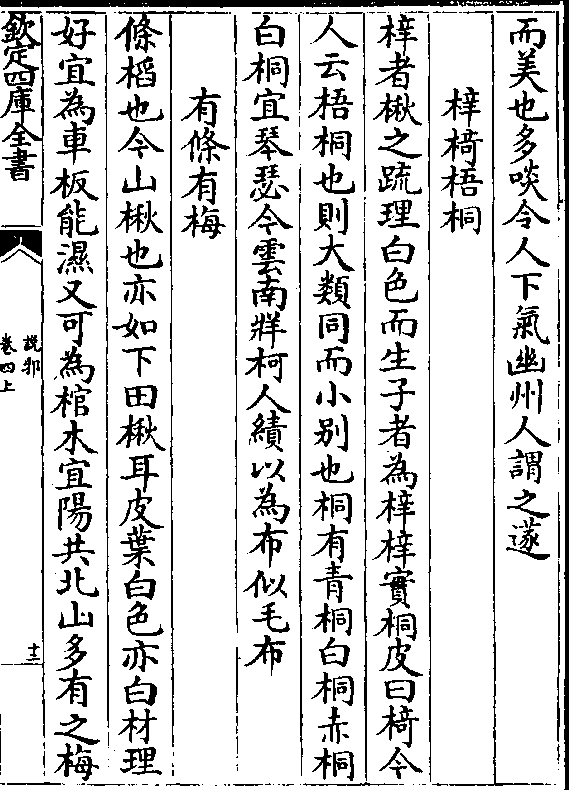 而美也多啖令人下氣幽州人謂之蓫
梓椅梧桐
梓者楸之疏理白色而生子者為梓梓實桐皮曰椅今
人云梧桐也則大類同而小别也桐有青桐白桐赤桐
白桐宜琴瑟今雲南牂柯人績以為布似毛布
有條有梅
條槄也今山楸也亦如下田楸耳皮葉白色亦白材理
好宜為車板能濕又可為棺木宜陽共北山多有之梅
欽定四庫全書
說郛
卷四上
十三